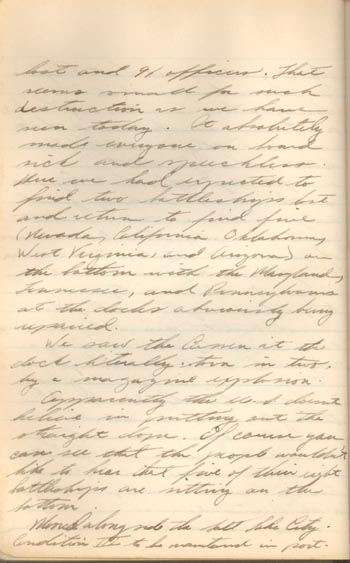 lost and 91 officers. That
seems small for such
destruction as we have
seen today. It absolutely
made everyone on board
sick and speechless.
Here we had expected to
find two battleships lost
and return to find five
(Nevada, California, Oklahoma,
West Virginia, and Arizona) on
the bottom with the Maryland,
Tennessee, and Pennsylvania
at the docks obviously being
repaired.
We saw the Cassin at the
dock literally torn in two,
by a magazine explosion.
Apparently the U.S. doesn't
believe in putting out the
straight dope. Of course you
can see that the people wouldn't
like to hear that five of their eight
battleships are sitting on the
bottom
Moored alongside the Salt Lake City.
Condition IV to be maintained in port.